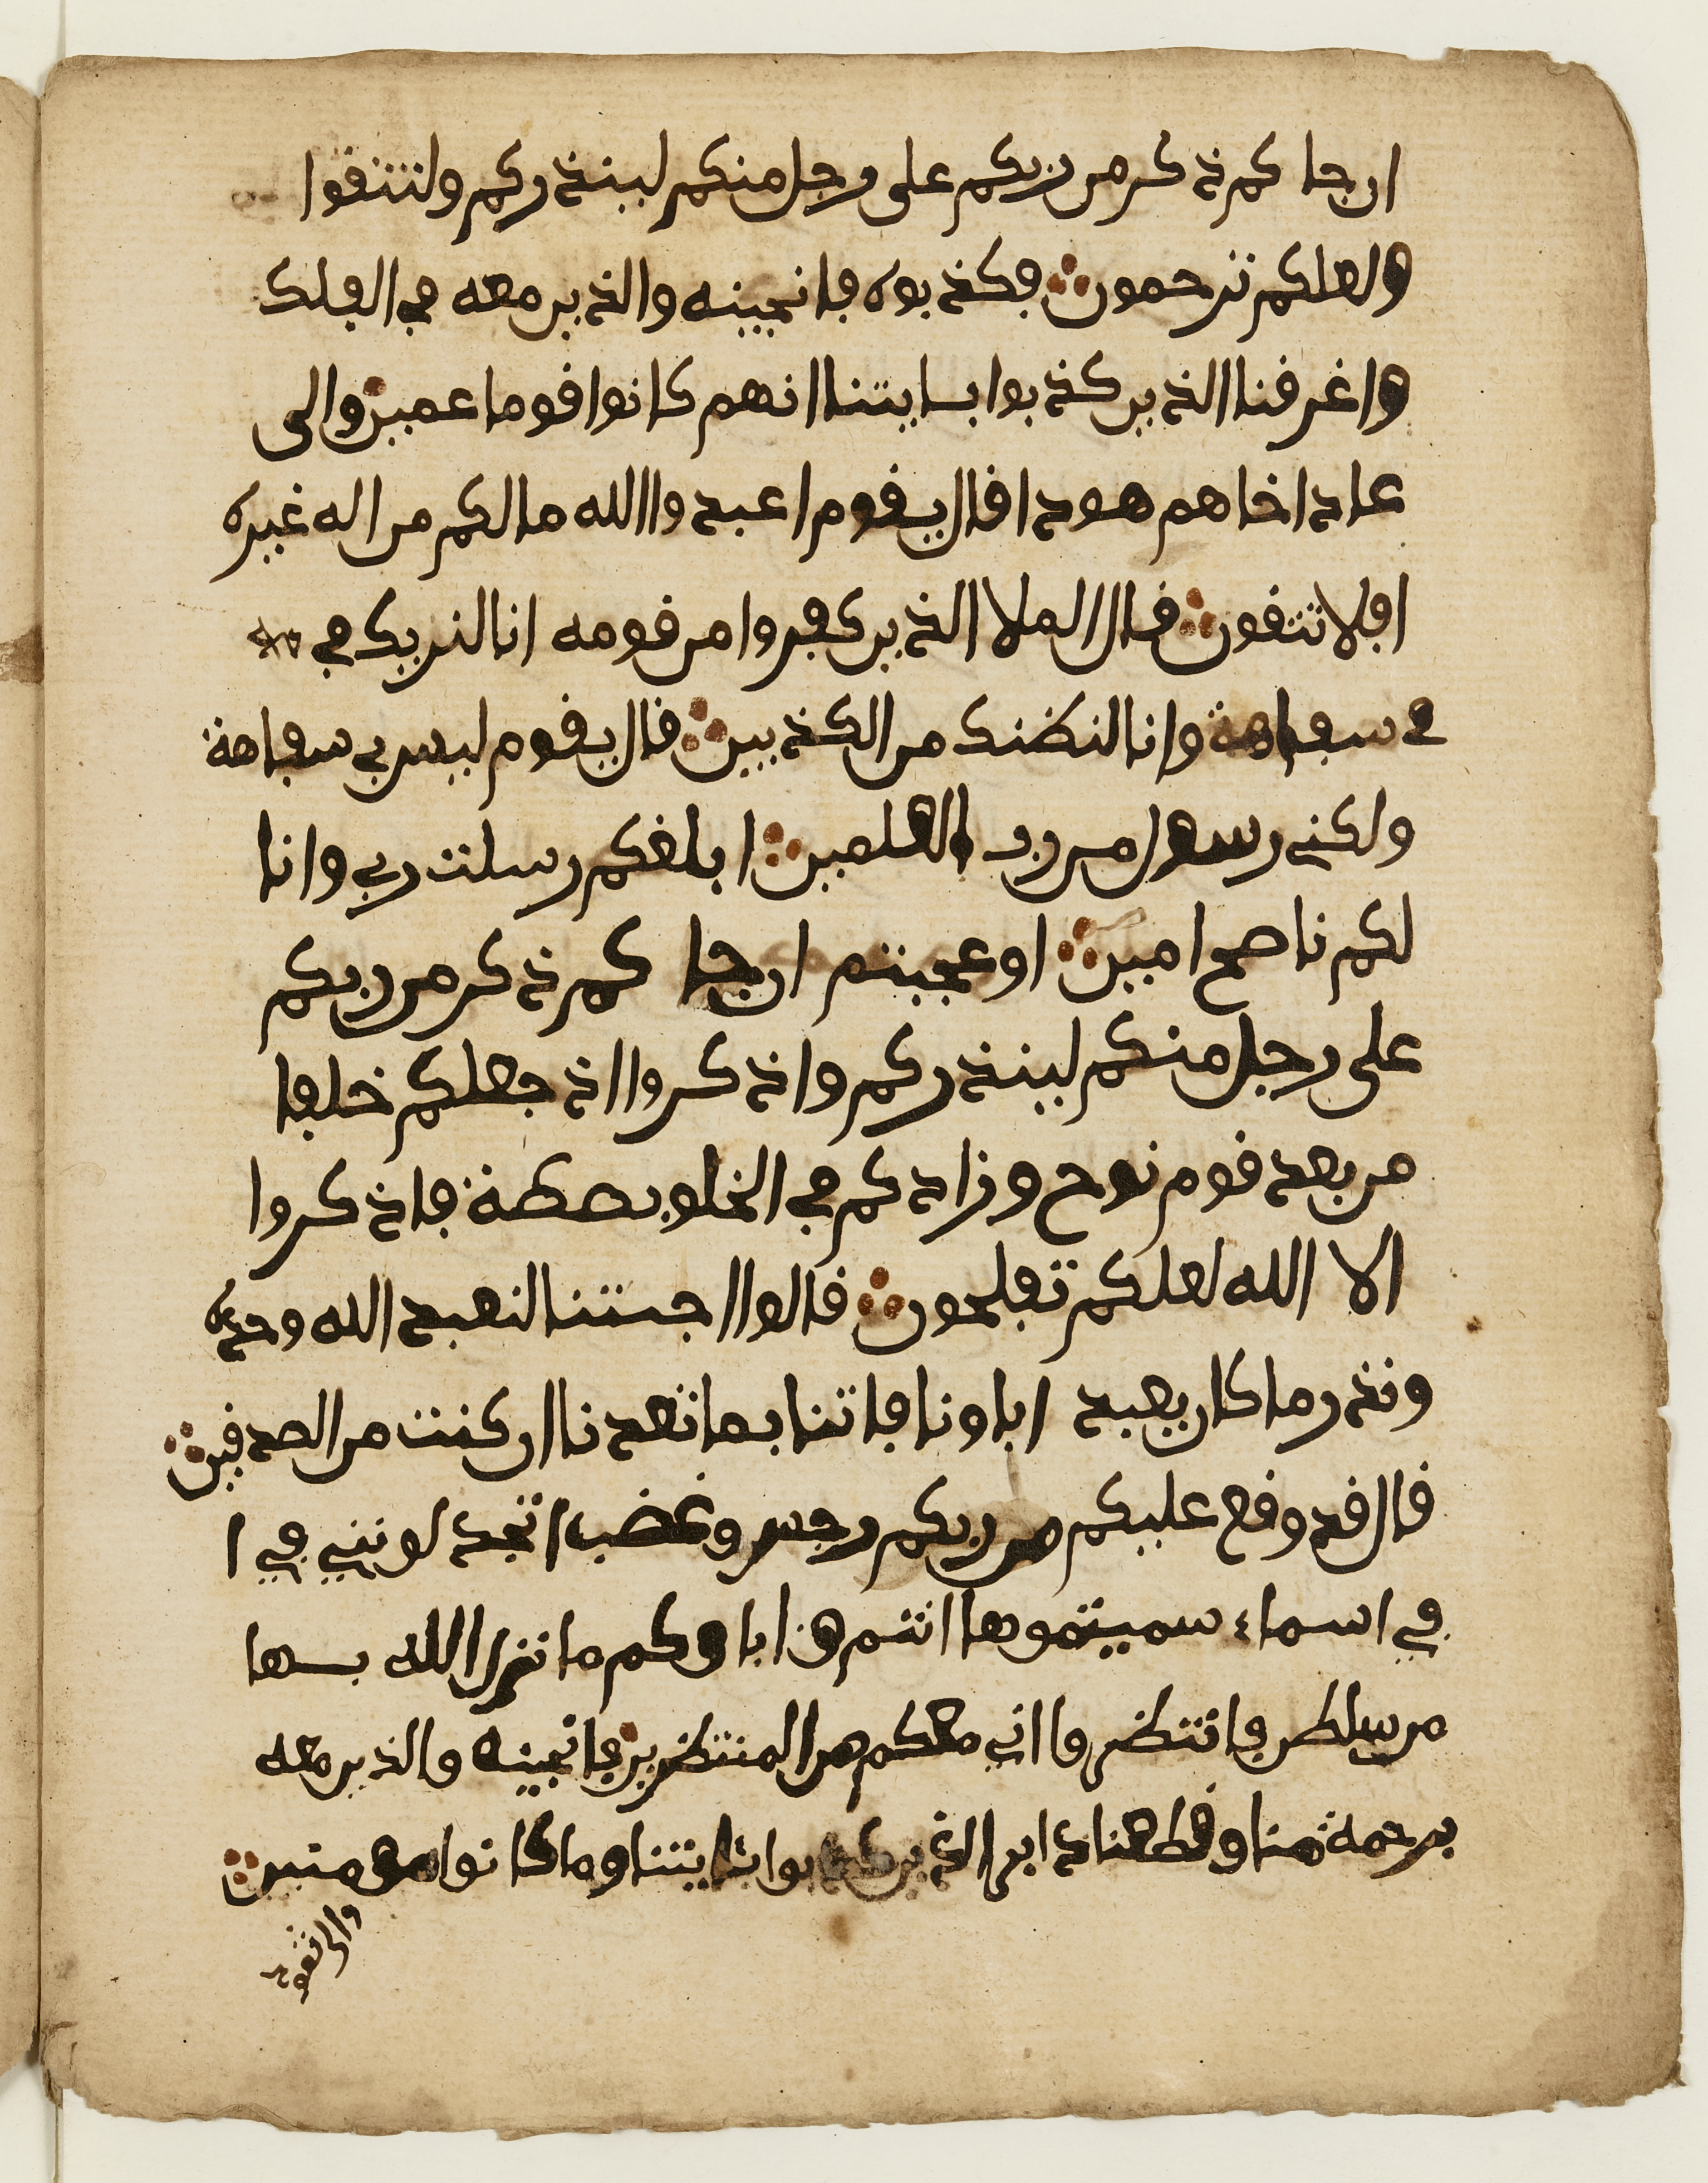 ان جا كم ذكر من ربكم على رجل منكم لينذركم ولتتقوا
ولعلكم ترحمون فكذبوه فانجينه والذين معه في الفلك
واغرقنا الذين كذبوا بايتنا انهم كانوا قوما عمين والى
عاد اخاهم هودا قال يقوم اعبدوا الله ما لكم من اله غيره
افلا تتقون قال الملا الذين كفروا من قومه انا لنريك في
في سفاهة وانا لنظنك من الكذبين قال يقوم ليس بي سفاهة
ولكني رسول من رب العلمين ابلغكم رسلت ربي وانا
لكم ناصح امين اوعجبتم ان جا كم ذكر من ربكم
على رجل منكم لينذركم واذكروا اذ جعلكم خلفا
من بعد قوم نوح وزادكم في الخلق بصطة فاذكروا
الا الله لعلكم تفلحون قالوا اجئتنا لنعبد الله وحده
ونذر ما كان يعبد اباونا فاتنا بما تعدنا ان كنت من الصدقين
قال قد وقع عليكم من ربكم رجس وغضب اتجدلونني في ا
في اسماء سميتموها انتم و اباوكم ما نزل الله بها
من سلطن فانتظروا اني معكم من المنتظرين فانجينه والذين معه
برحمة منا وقطعنا دابر الذين كذبوا بايتنا وما كانوا مومنين
والى ثمود